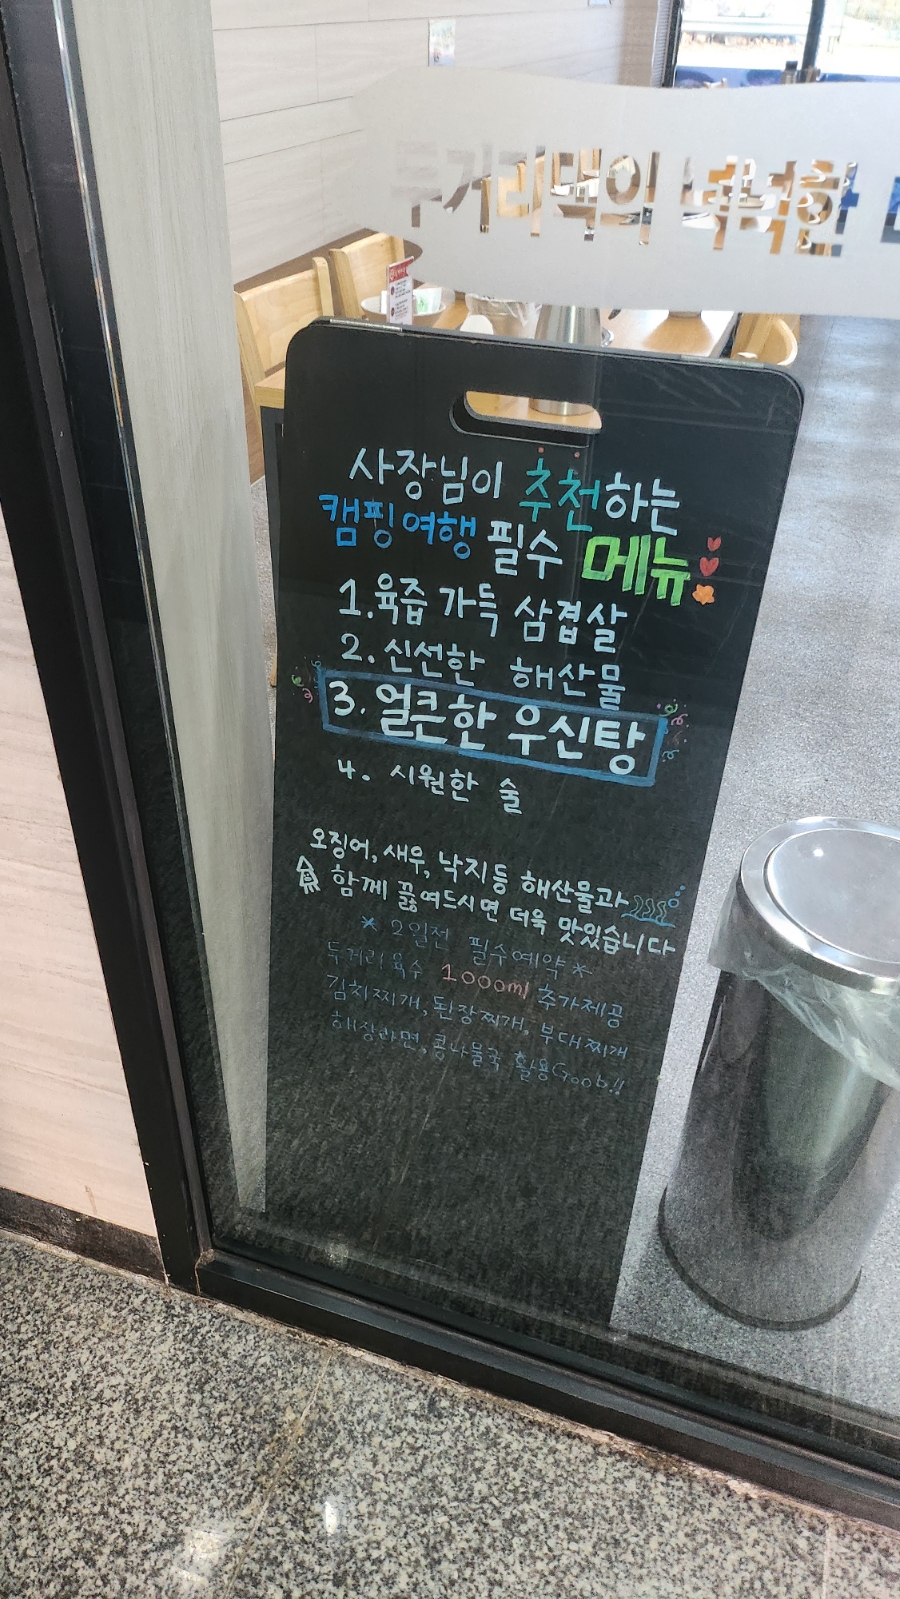 두거리댁의 넉넉한
사장님이 추천하는
캠핑여행 필수 메뉴
1.육즙 가득 삼겹살
2. 신선한 해산물
3. 얼큰한 우신탕
4. 시원한 술
오징어, 새우, 낙지등 해산물과
함께 끓여드시면 더욱 맛있습니다
* 2일전 필수예약 *
두거리 육수 1000ml 추가제공
김치찌개, 된장찌개, 부대찌개
해장라면, 콩나물국 활용Goob!!